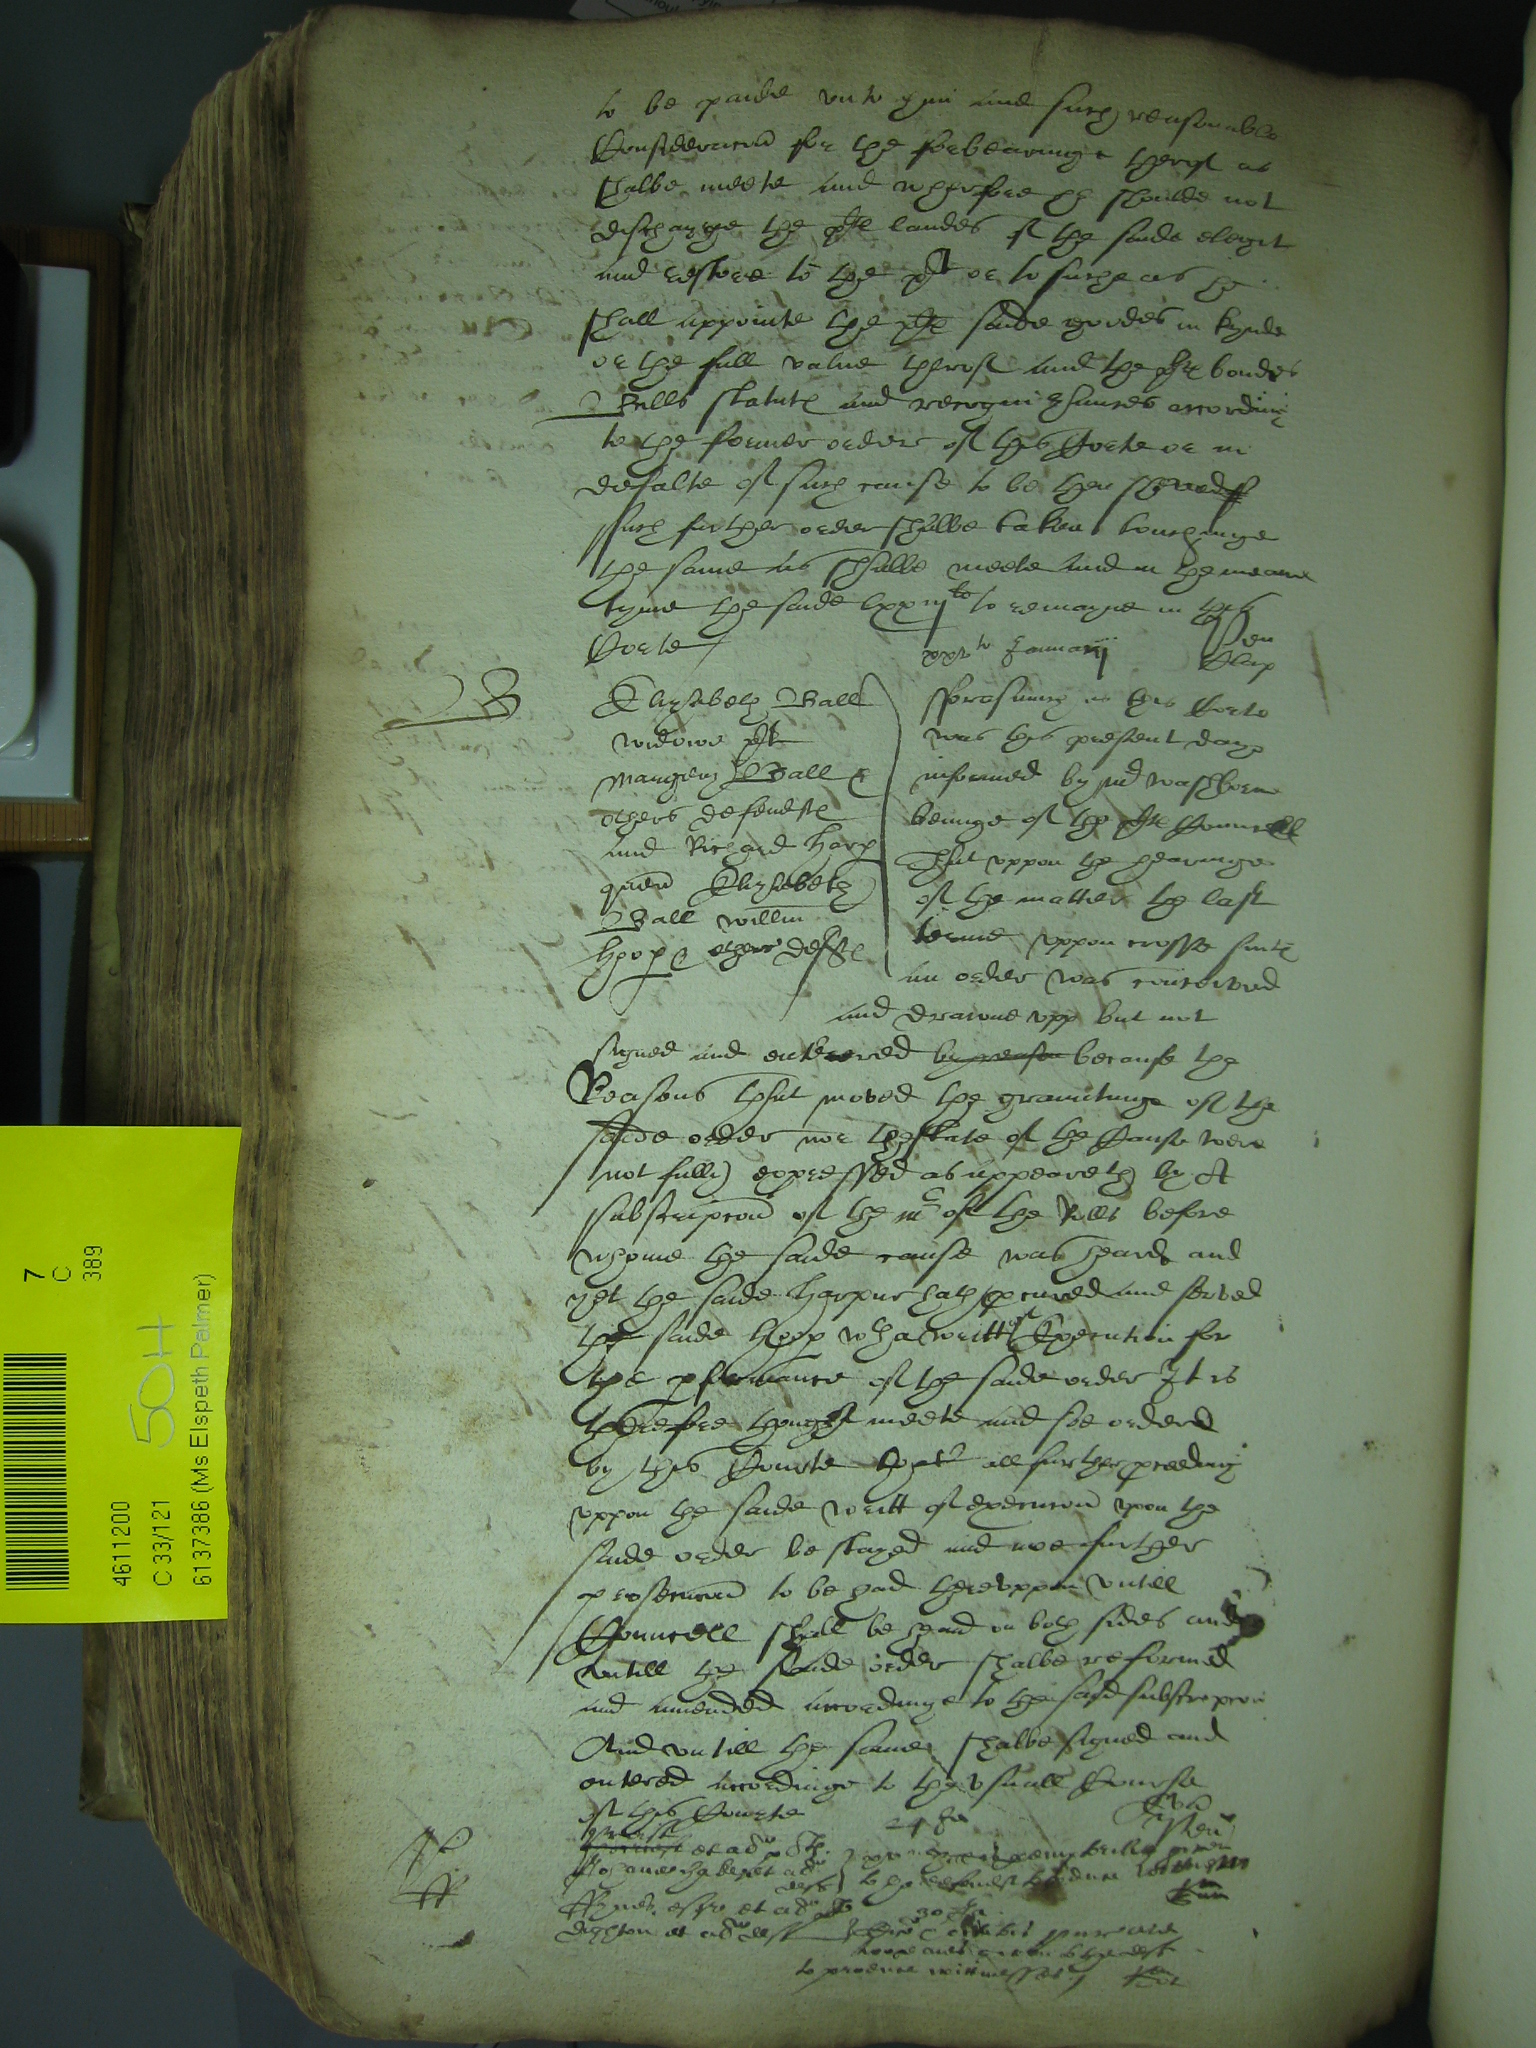 to be paide unto hym and such reasonable
Consideracon for the forbearinge therof as
shalbe meete and wherfore he shoulde not
discharge the plt landes of the saide elegit
and restore to the plt or to suche as he
shall appointe the plt saide goodes in kynde
or the full value therof and the plt bondes
Bills statute and recognizaunces according
to the former order of this Corte or in
defalte of such cause to be then shewed
such further order shalbe taken touchinge
the same as shalbe meete and in the meane
tyme the saide lxxiijli to remayne in this
Corte
xxxto Januarij
Pen
B
Elyzabeth Ball
widowe plt
Margery Ball &
others defendtes
and Richard Harp
quer Elyzabeth
Ball willm
hoop & others deftes
Forasmuch as this Corte
was this present daye
informed by mr washborne
beinge of the plt Councell
That uppon the hearinge
of the matter the last
terme uppon crosse suite
an order was conceived
and drawne upp but not
signed and entered by reason because the
Reasons that moved the grauntinge of the
saide order nor the state of the Cause were
not fully expressed as appeareth by A
subscripcon of the mr of the Rolls before
whome the saide cause was heard and
yet the saide Harpur hath procured and served
the saide hoop wth a writt of Execution for
the pformance of the saide order It is
therefore thought meete and soe ordered
by this Courte that all further proceeding
uppon the saide writt of execucon upon the
saide order be stayed and noe further
prosecucon to be had thereuppon untill
Councell shall be heard on both sides and
untill the saide order shalbe reformed
and amended accordinge to the said subscripcon
And untill the same shalbe signed and
entered accordinge to the usuall Course
of this Courte
to produce wittnesses
7
C
389
50H
4611200
C 33/121
6137386 (Ms Elspeth Palmer)